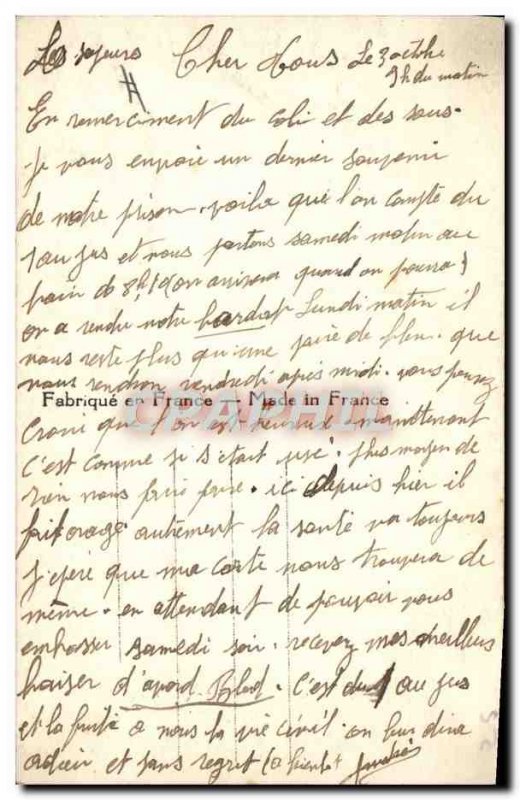 Cher Vous Le 3 octobre
9h du matin
En remerciment du coli et des sous.
Je vous envoie un dernier souvenir
de notre prison. voila que l'on compte du
au jus et nous partons samedi matin au
train de 8h10 (on arrivera quand on pourra)
on a rendu notre Lundi matin il
nous reste plus qu'une paire de que
nous rendron vendredi après midi. vous pouvez
Fabriqué en France — Made in France
CPAPHIL
croire que l'on est heureux maintenant
c'est comme si s'était usé. plus moyen de
rien nous faire faire. ici depuis hier il
fait orage autrement la santé va toujours
j'epère que ma carte vous trouvera de
même. en attendant de pouvoir vous
embrasser samedi soir. recevez mes meilleurs
baiser d'. C'est du au jus
et la fuite a nous la vie civil. on leur dira
adieu et sans regret (a bientot